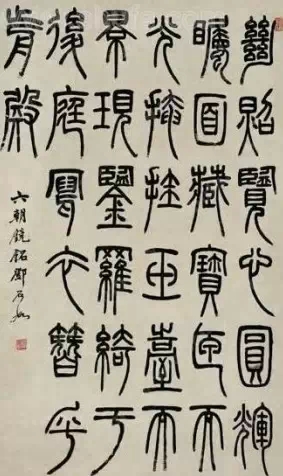 幽照覽心圓輝
矚面藏寶匣而
光掩挂玉臺而
景現鑒羅綺于
後庭寫衣簪乎
前殿
六朝鏡銘 鄧石如